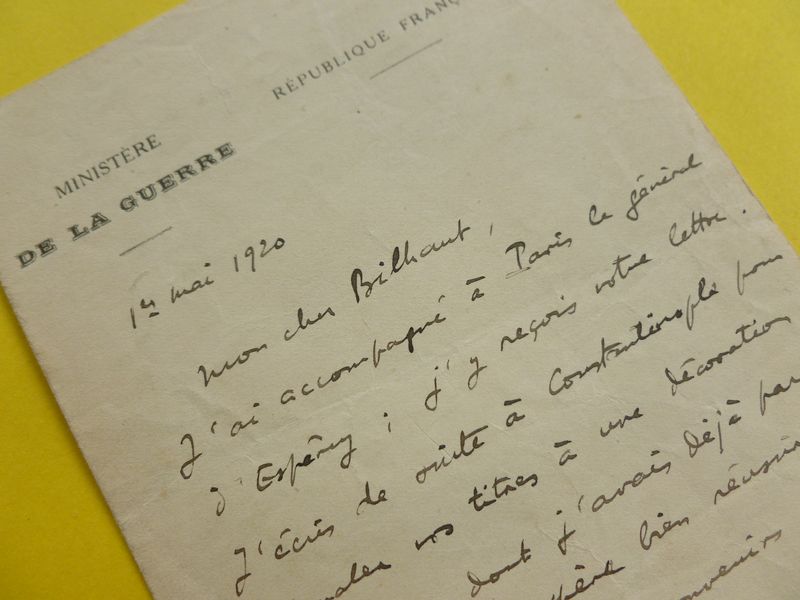 RÉPUBLIQUE FRANÇ
MINISTÈRE
DE LA GUERRE
1er mai 1920
Mon cher Bilhaut,
J'ai accompagné à Paris le général
d'Espérey ; j'y reçois votre lettre.
J'écris de suite à Constantinople pour
vos titres à une décoration
dont j'avais déjà par
bien réussir